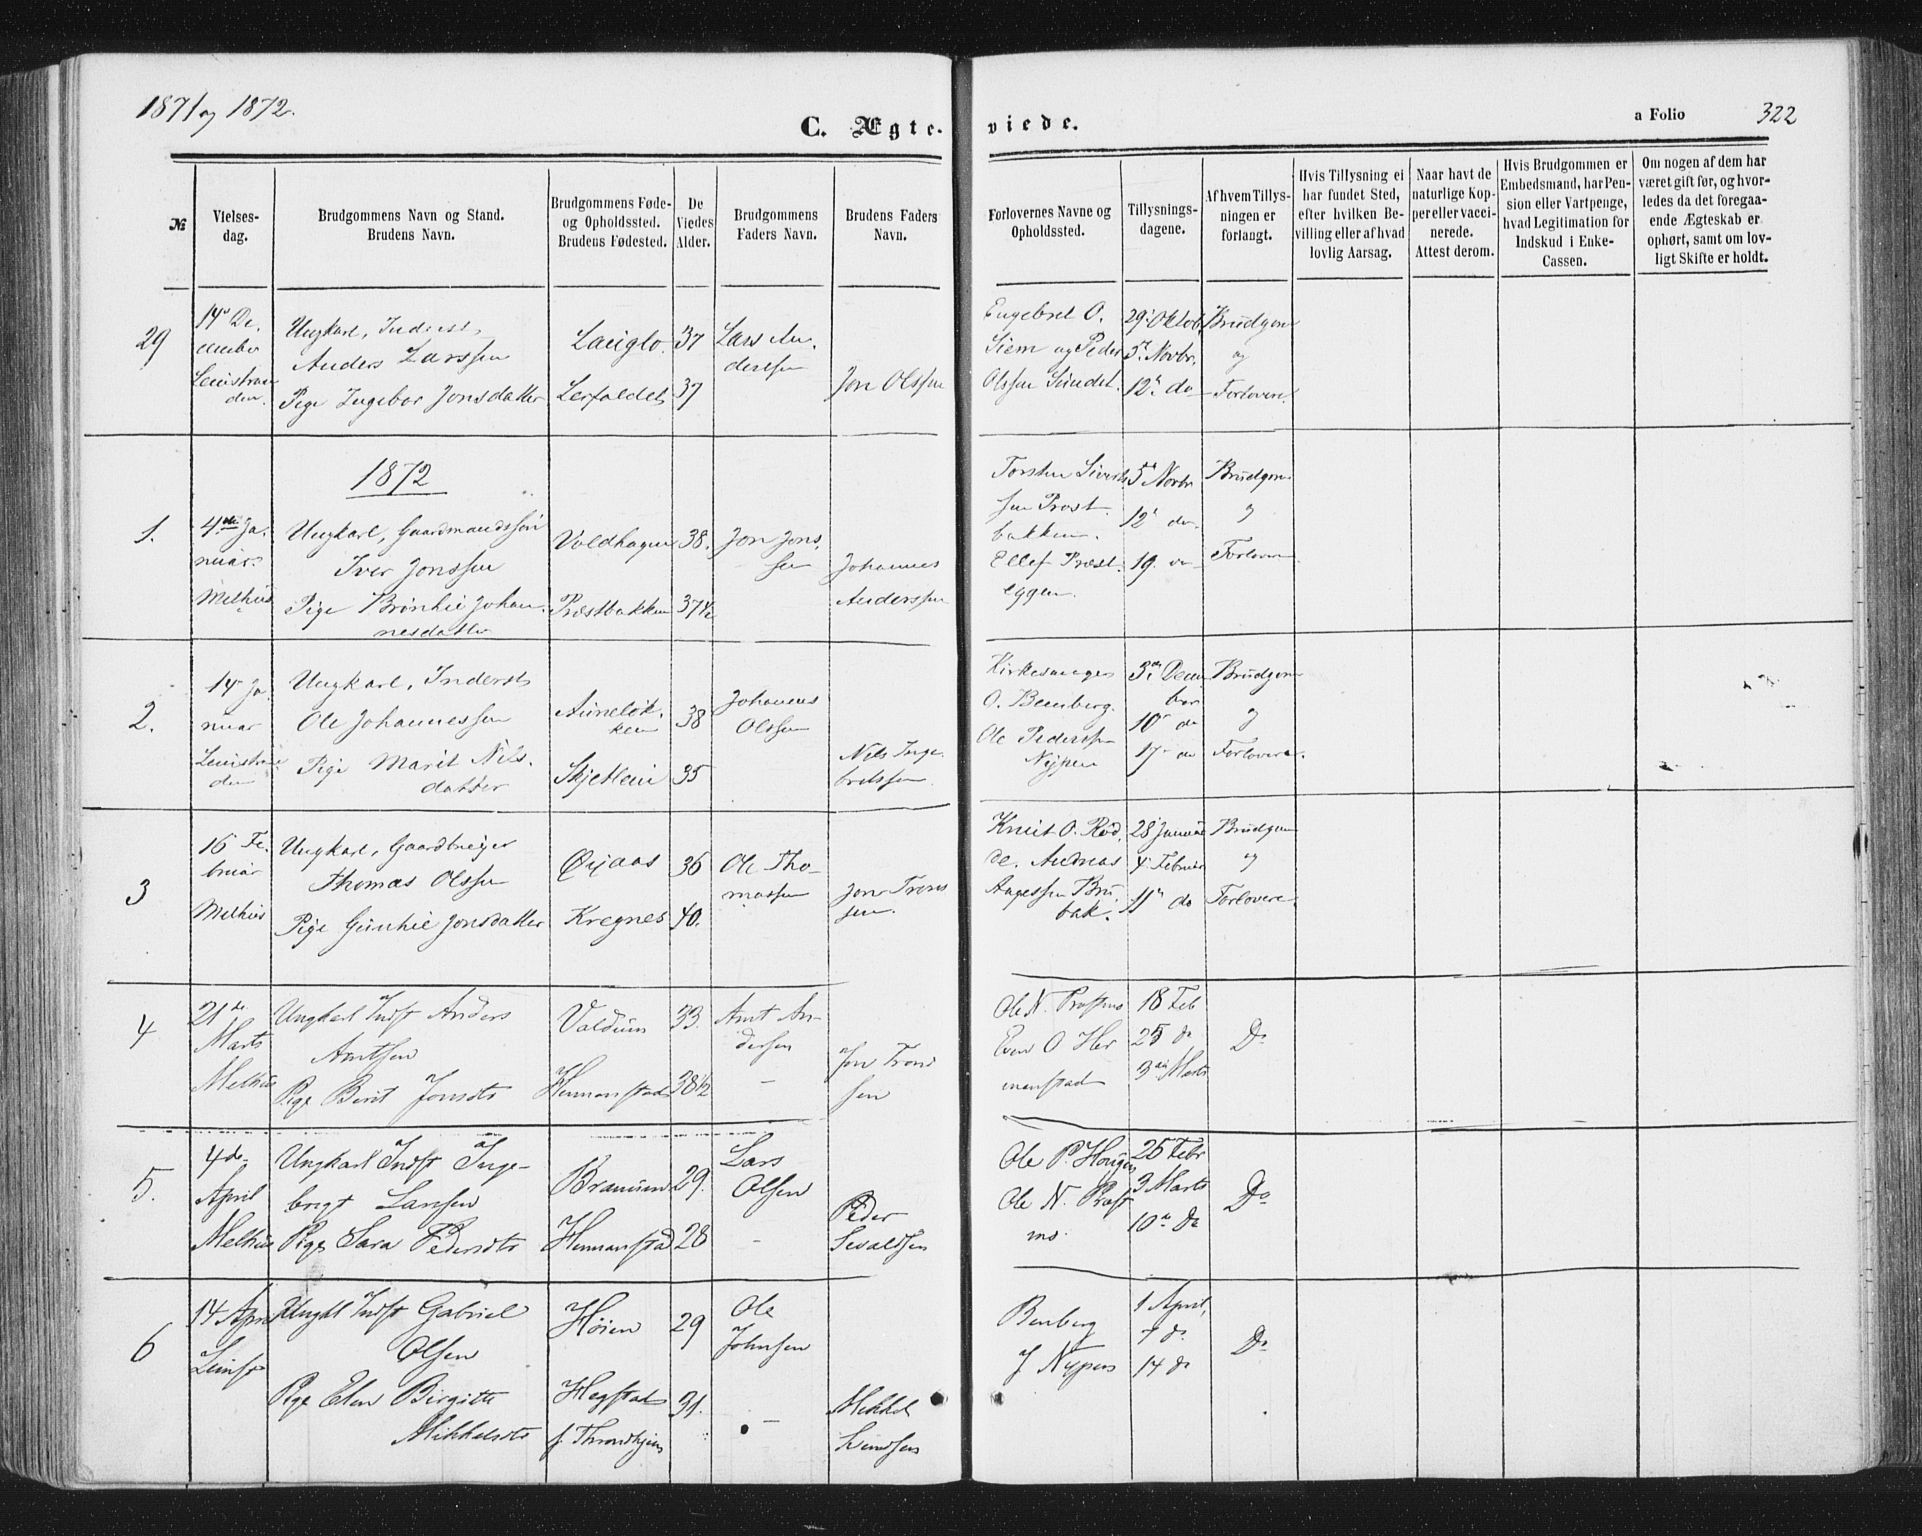 1871 og 1872.
C. Ægte-
viede.
a Folio 322
№
Vielses-
dag.
Brudgommens Navn og Stand.
Brudens Navn.
Brudgommens Føde-
og Opholdssted.
Brudens Fødested.
De
Viedes
Alder.
Brudgommens
Faders Navn.
Brudens Faders
Navn.
Forlovernes Navne og
Opholdssted.
Tillysnings-
dagene.
Af hvem Tillys-
ningen er
forlangt.
Hvis Tillysning ei
har fundet Sted,
efter hvilken Be-
villing eller af hvad
lovlig Aarsag.
Naar havt de
naturlige Kop-
per eller vacci-
nerede.
Attest derom.
Hvis Brudgommen er
Embedsmand, har Pen-
sion eller Vartpenge,
hvad Legitimation for
Indskud i Enke-
Cassen.
Om nogen af dem har
været gift før, og hvor-
ledes da det foregaa-
ende Ægteskab er
ophørt, samt om lov-
ligt Skifte er holdt.
29
14 De-
cember
Leinstran
den.
Ungkarl, Inderst,
Anders Larssen
Pige Ingebor Jonsdatter
Lauglo
Lerfaldet
37
37
Lars An-
derssen
Jon Olssen
Engebret O.
Siem og Peder
Olssen Sundet.
29 Oktob.
5 Novbr,
12 do
Brudgom
og
Forlovere.
1872
1.
4de Ja-
nuar.
Melhus
Ungkarl, Gaardmandssøn
Iver Jonssen
Pige Brønhie Johan-
nesdatter
Voldhagen
Præstbakken
38.
37½
Jon Jons-
sen
Johannes
Anderssen
Torsten Siverts
sen Præst-
bakken.
Ellef Præst-
eggen.
5 Novbr
12 do.
19 do
Brudgom
og
Forlovere
2.
14 Ja-
nuar
Leinstran
den
Ungkarl, Inderst
Ole Johannessen
Pige Marit Nils-
datter
Auneløk-
ken
Skjetlein
38
35
Johannes
Olssen
Nils Inge-
bretssen.
Kirkesanger
O. Benberg.
Ole Pederssen
Nypen
3 Decem
ber
10 do
17 do
Brudgom
og
Forlovere.
3
16 Fe-
bruar
Melhus
Ungkarl, Gaardbruger
Thomas Olssen
Pige Gunhie Jonsdatter
Øyaas
Kregnes
36
40.
Ole Tho-
massen
Jon Trons
sen.
Knut O. Rød.
de. Andreas
Aagessen Bru-
bak.
28 Januar
4 Februar
11 do
Brudgom
og
Forlovere
4
21 de
Marts
Melhus
Ungkarl Indst Anders
Arntsen
Pige Berit Jonsdtr
Valdum
Hermanstad
33.
38½
Arnt An-
dersen
-
Jon Trond
sen
Ole N. Prestmo
Even O Her
manstad
18 Feb
25 do
3 Marts
Do
5.
4de
April
Melhus
Ungkarl Indst Inge-
brigt Larsen
Pige Sara Pedersdtr
Bramem
Hermanstad
29.
28
Lars
Olsen
-
Peder
Sivaldsen
Ole P. Hougen
Ole N. Præst
mo.
25 Febr
3 Marts
10 do
Do
6
14 April
Leinst
Ungkl Indst Gabriel
Olsen
Pige Elen Birgitte
Mikkelsdtr
Høien
Hegstad
f. Throndhjem
29
31.
Ole
Johnsen
-
Mikkel
Benberg
J Nypen
1 April,
7 do
14 do
Do